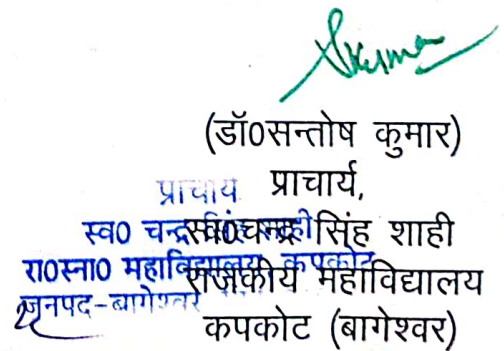 (डॉ0सन्तोष कुमार)
प्राचार्य,
स्व0चन्द्र सिंह शाही
राजकीय महाविद्यालय
कपकोट (बागेश्वर)
प्राचार्य
स्व0 चन्द्र सिंह शाही
रा0स्ना0 महाविद्यालय कपकोट
जनपद-बागेश्वर